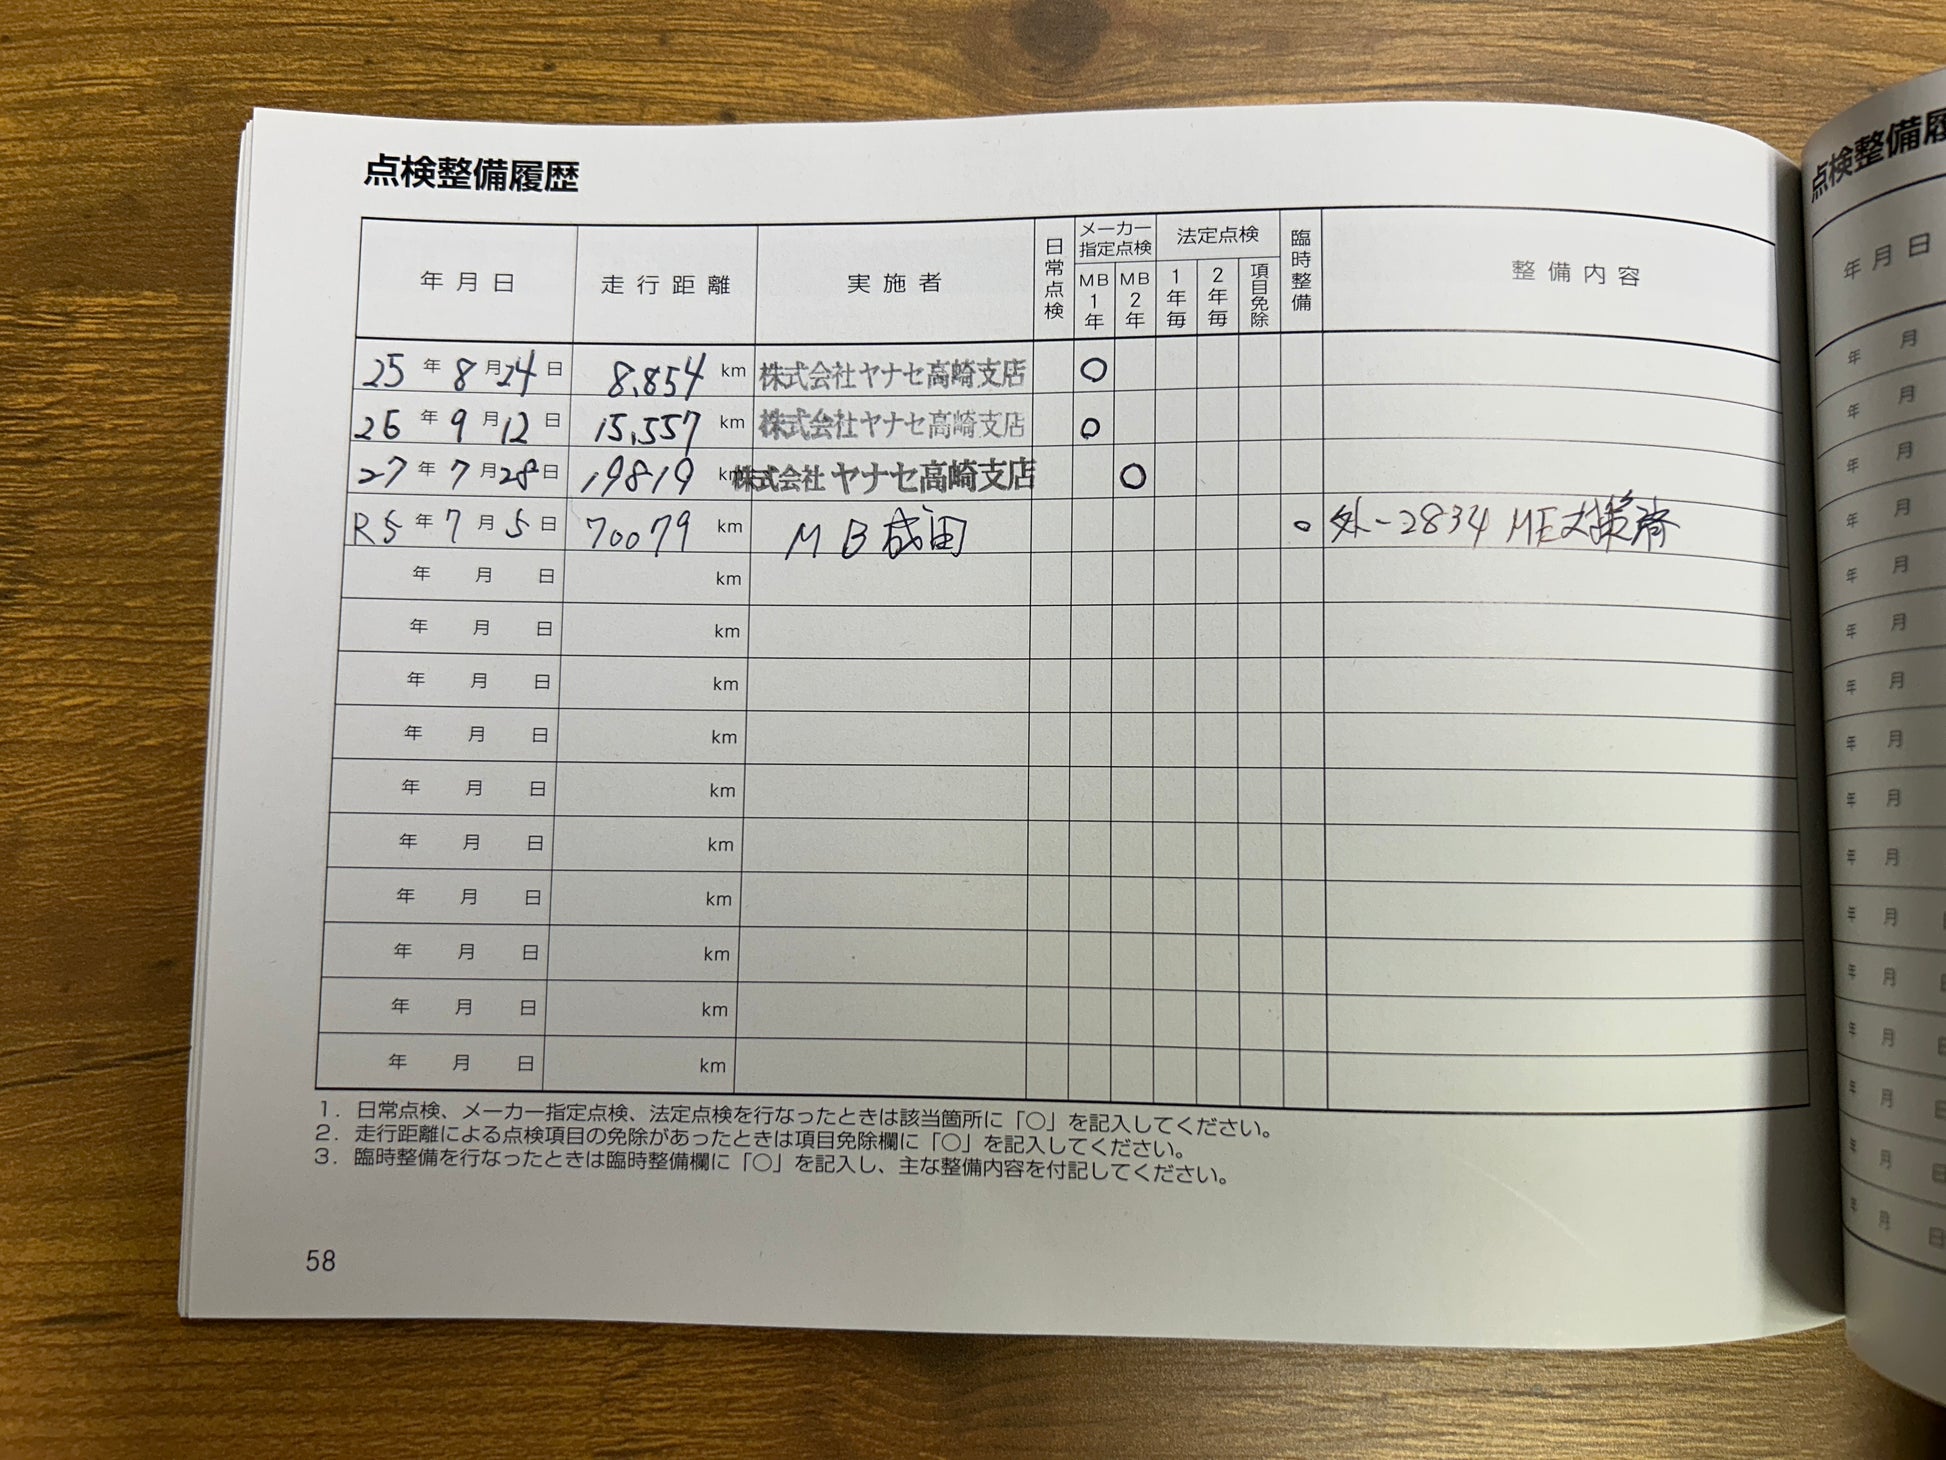 点検整備履歴
年月日 走行距離 実施者 日常点検 メーカー指定点検 MB1年 MB2年 法定点検 1年毎 2年毎 項目免除 臨時整備 整備内容
25年8月24日 8,854km 株式会社ヤナセ高崎支店 ○
26年9月12日 15,557km 株式会社ヤナセ高崎支店 ○
27年7月28日 19819km 株式会社ヤナセ高崎支店 ○
R5年7月5日 70079km MB成田 ○ 外-2834 ME対策済
年 月 日 km
年 月 日 km
年 月 日 km
年 月 日 km
年 月 日 km
年 月 日 km
年 月 日 km
年 月 日 km
年 月 日 km
年 月 日 km
1. 日常点検、メーカー指定点検、法定点検を行なったときは該当箇所に「○」を記入してください。
2. 走行距離による点検項目の免除があったときは項目免除欄に「○」を記入してください。
3. 臨時整備を行なったときは臨時整備欄に「○」を記入し、主な整備内容を付記してください。
58
点検整備履
年月日
年 月
年 月
年 月
年 月
年 月
年 月
年 月
年 月
年 月
年 月
年 月
年 月 日
年 月 日
年 月 日
年 月 日
年 月 日